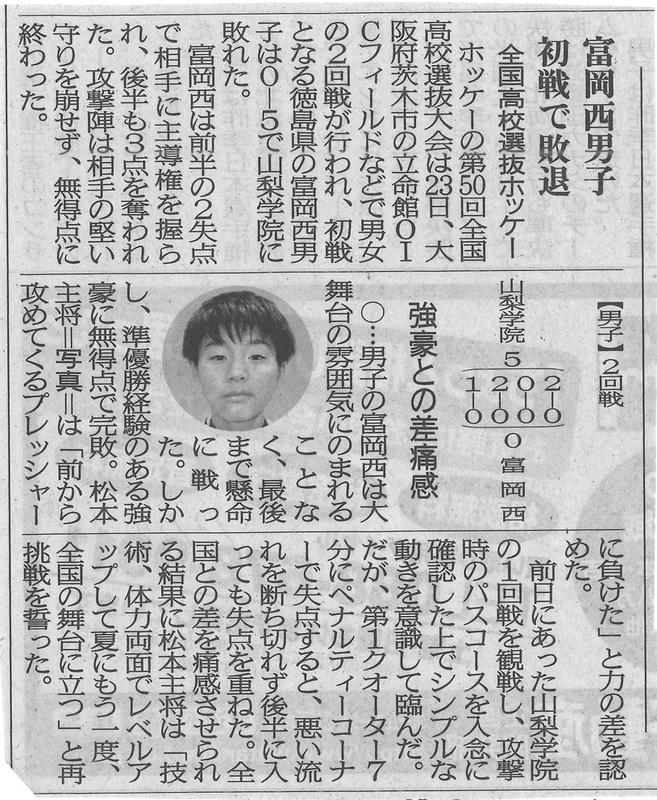 富岡西男子
初戦で敗退
全国高校選抜ホッケー
ホッケーの第50回全国
高校選抜大会は23日、大
阪府茨木市の立命館OI
Cフィールドなどで男女
の2回戦が行われ、初戦
となる徳島県の富岡西男
子は0―5で山梨学院に
敗れた。
富岡西は前半の2失点
で相手に主導権を握ら
れ、後半も3点を奪われ
た。攻撃陣は相手の堅い
守りを崩せず、無得点に
終わった。
【男子】2回戦
山梨学院 5 2―0 0―0 2―0 1―0 0 富岡西
強豪との差痛感
○…男子の富岡西は大
舞台の雰囲気にのまれる
ことな
く、最後
まで懸命
に戦っ
た。しか
し、準優勝経験のある強
豪に無得点で完敗。松本
主将=写真=は「前から
攻めてくるプレッシャー
に負けた」と力の差を認
めた。
前日にあった山梨学院
の1回戦を観戦し、攻撃
時のパスコースを入念に
確認した上でシンプルな
動きを意識して臨んだ。
だが、第1クオーター7
分にペナルティーコーナ
ーで失点すると、悪い流
れを断ち切れず後半に入
っても失点を重ねた。全
国との差を痛感させられ
る結果に松本主将は「技
術、体力両面でレベルア
ップして夏にもう一度、
全国の舞台に立つ」と再
挑戦を誓った。